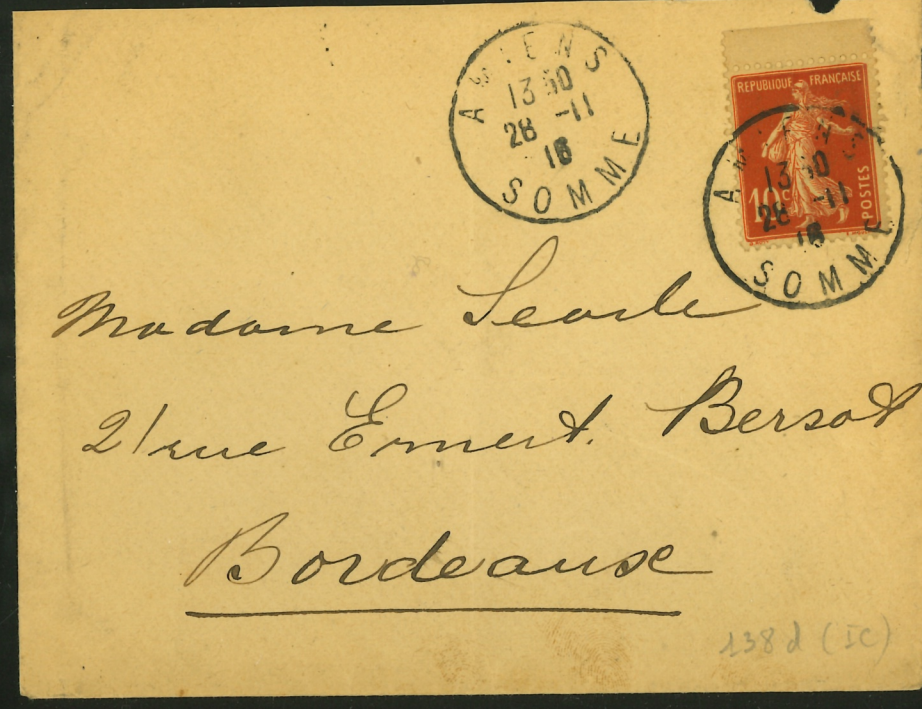 AMIENS
13 50
28 -11
16
SOMME
REPUBLIQUE FRANÇAISE
10c
POSTES
AMIENS
13 50
28 -11
16
SOMME
Madame Searle
21 rue Ernest Bersot
Bordeaux
138 d (IC)